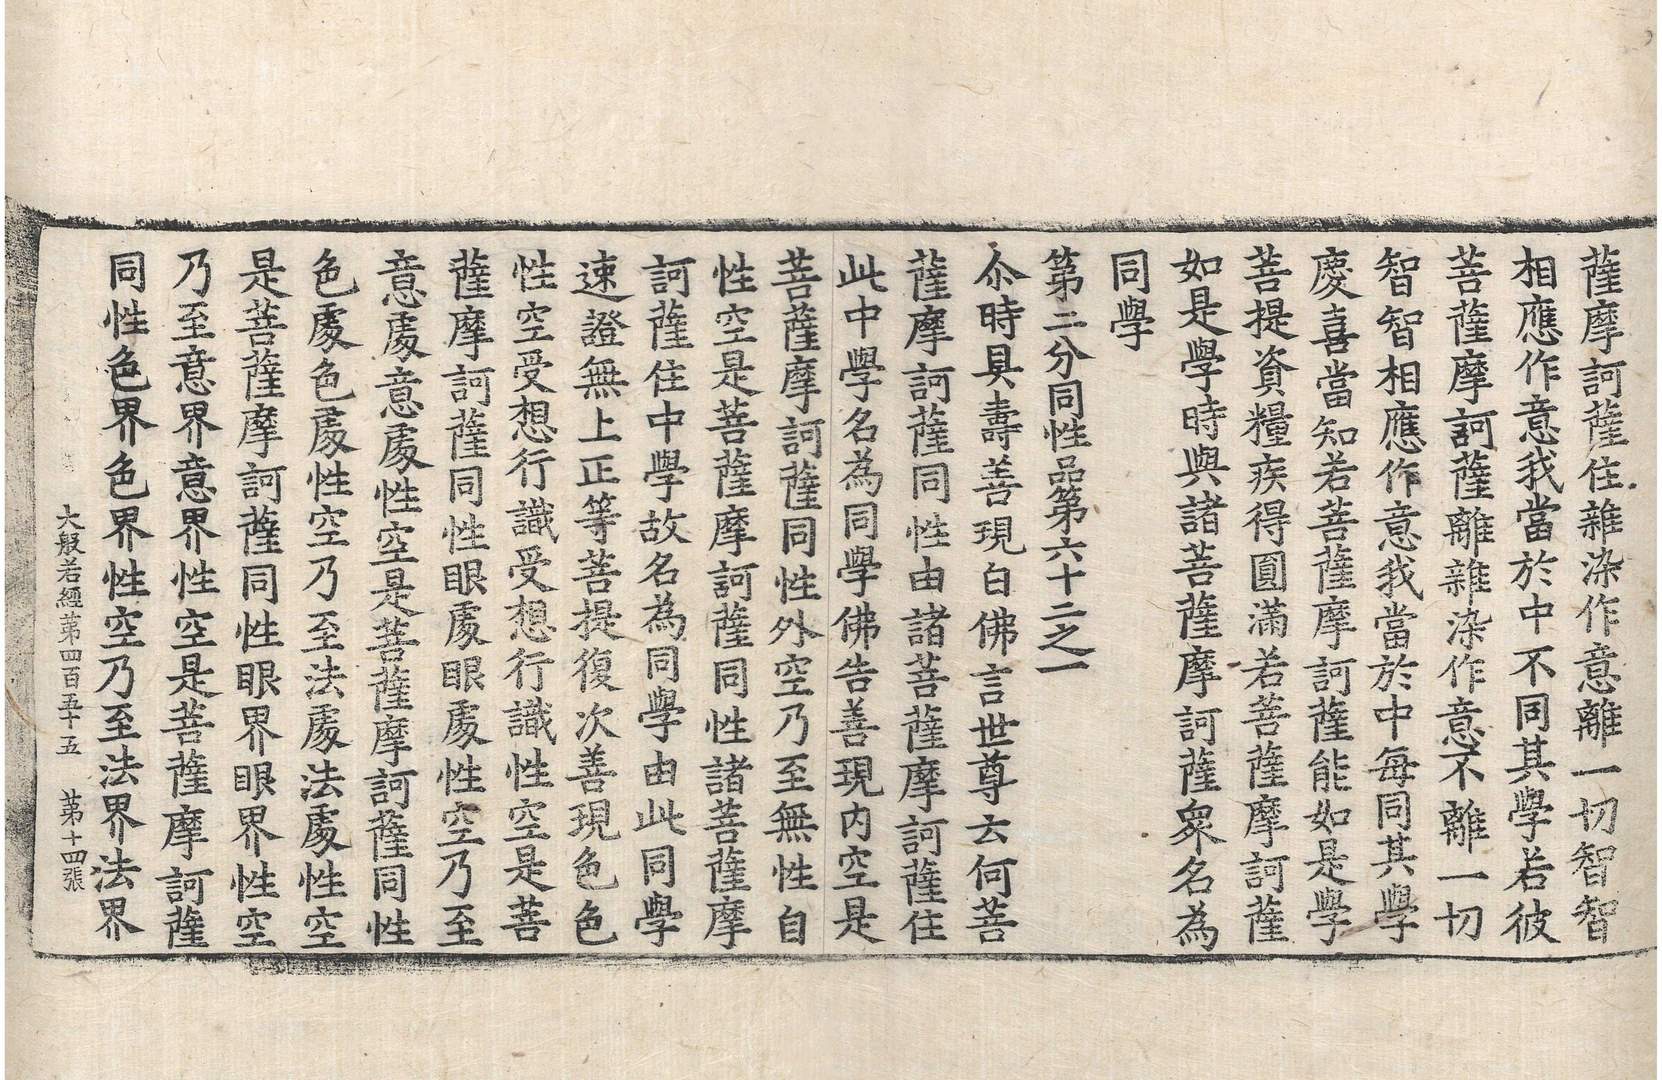 薩摩訶薩住雜染作意離一切智智
相應作意我當於中不同其學若彼
菩薩摩訶薩離雜染作意不離一切
智智相應作意我當於中每同其學
慶喜當知若菩薩摩訶薩能如是學
菩提資糧疾得圓滿若菩薩摩訶薩
如是學時與諸菩薩摩訶薩衆名為
同學
第二分同性品第六十二之一
尒時具壽善現白佛言世尊云何菩
薩摩訶薩同性由諸菩薩摩訶薩住
此中學名為同學佛告善現内空是
菩薩摩訶薩同性外空乃至無性自
性空是菩薩摩訶薩同性諸菩薩摩
訶薩住中學故名為同學由此同學
速證無上正等菩提復次善現色色
性空受想行識受想行識性空是菩
薩摩訶薩同性眼處眼處性空乃至
意處意處性空是菩薩摩訶薩同性
色處色處性空乃至法處法處性空
是菩薩摩訶薩同性眼界眼界性空
乃至意界意界性空是菩薩摩訶薩
同性色界色界性空乃至法界法界
大般若經第四百五十五 第十四張